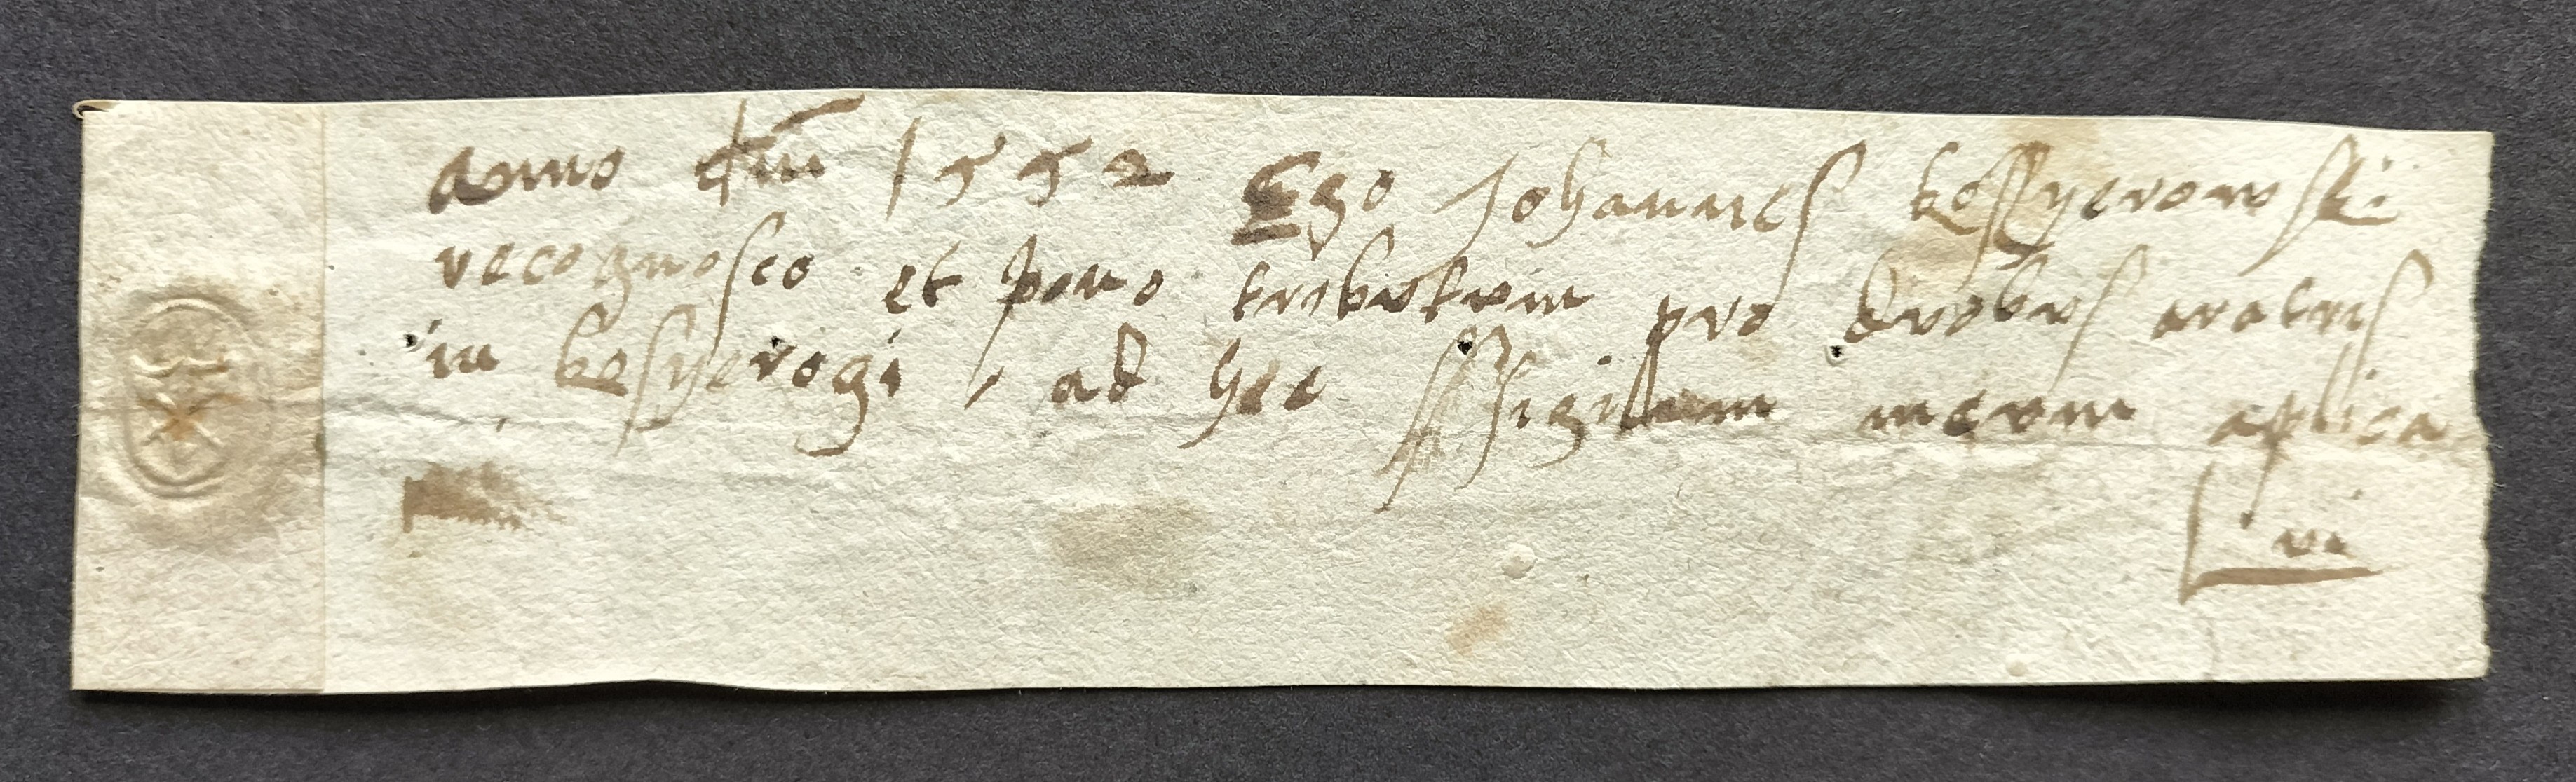 anno dni 1552 Ego Johannes kossyerowski
recognosco et pono tributum pro duobus aratris
in kosyerogi, ad hec sigillum meum aplica
vi